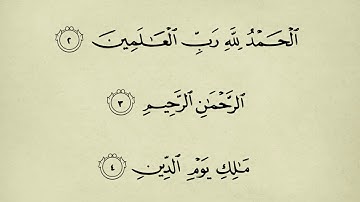 الْحَمْدُ لِلَّهِ رَبِّ الْعَٰلَمِينَ ٢
الرَّحْمَٰنِ الرَّحِيمِ ٣
مَٰلِكِ يَوْمِ الدِّينِ ٤